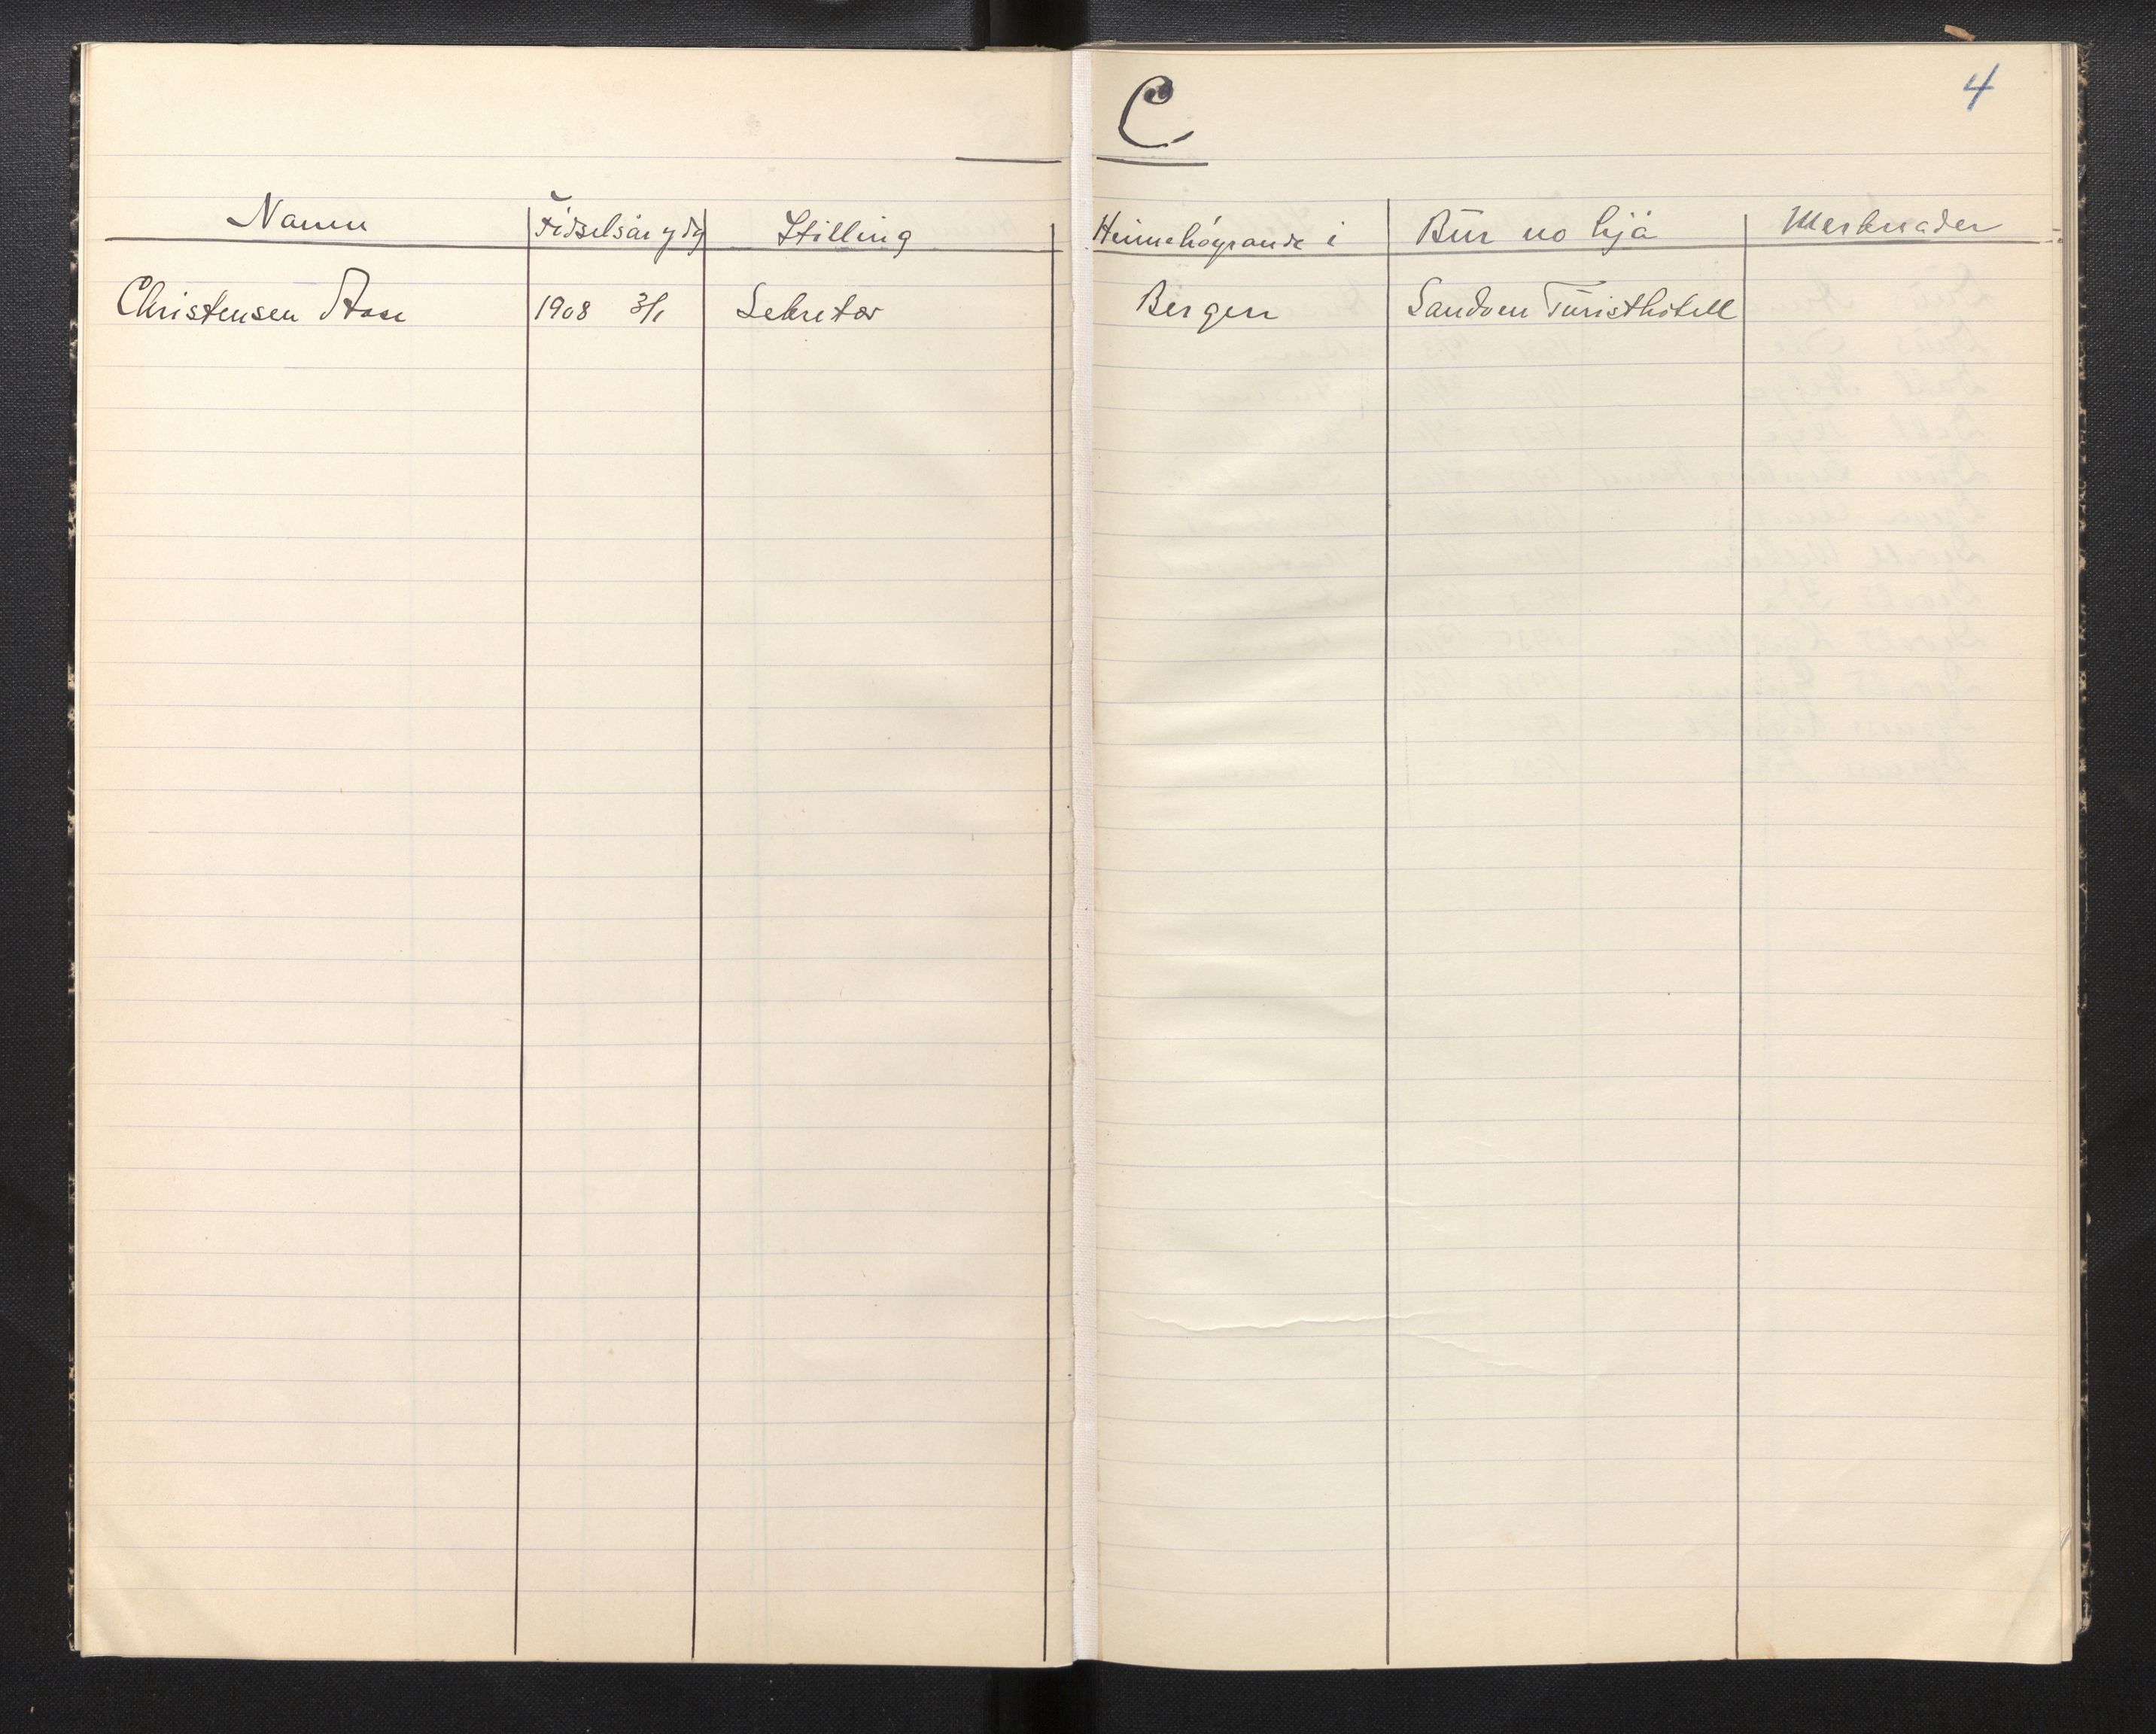 C
4
Namn Födselsår ydg Stilling Heimehöyrande i Bur no hjå Merknader
Christensen Aase 1908 3/1 Sekretær Bergen Sandven Turisthotell